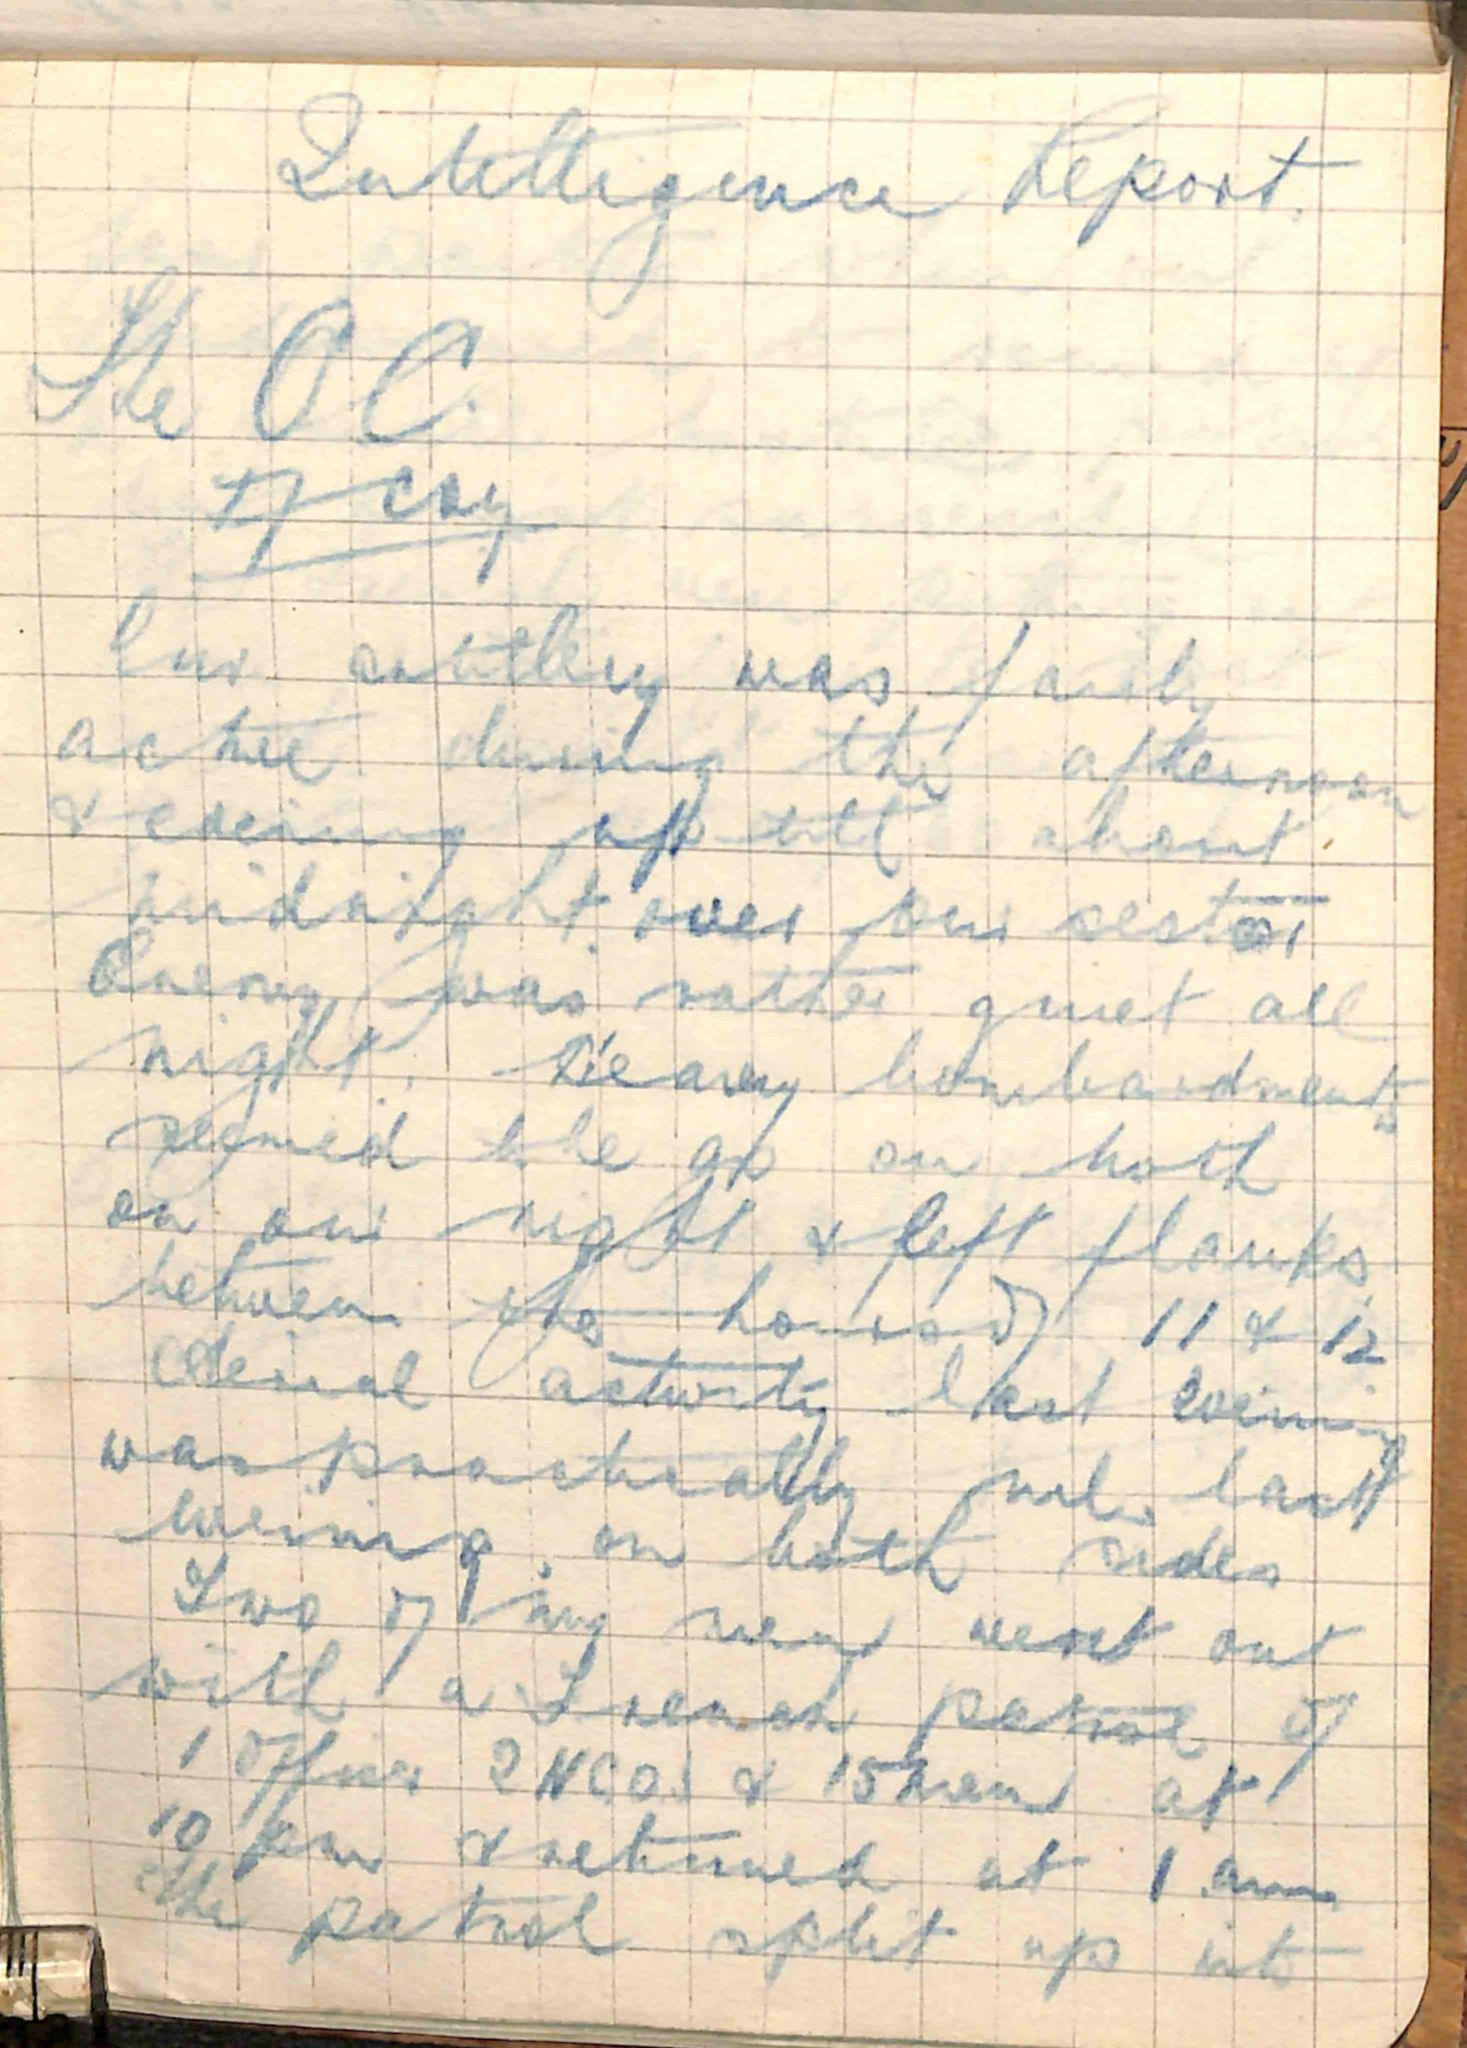 Intelligence Report.
The O.C.
Coy
Our artillery was fairly
active during the afternoon
& evening up till about
midnight over our sector
Enemy was rather quiet all
night. Heavy bombardments
seemed to be go on both
on our right & left flanks
between the hours of 11 & 12
Aerial activity last evening
was practically nil. last
evening. on both sides
Two of my men went out
with a French patrol of
1 Officer 2 NCO's & 15 men at
10 pm & returned at 1 am
The patrol split up into